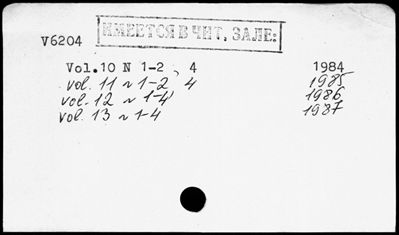 ИМЕЕТСЯ В ЧИТ. ЗАЛЕ:
V6204
Vol.10 N 1-2, 4 1984
vol. 11 N 1-2, 4 1985
vol. 12 N 1-4 1986
vol. 13 N 1-4 1987